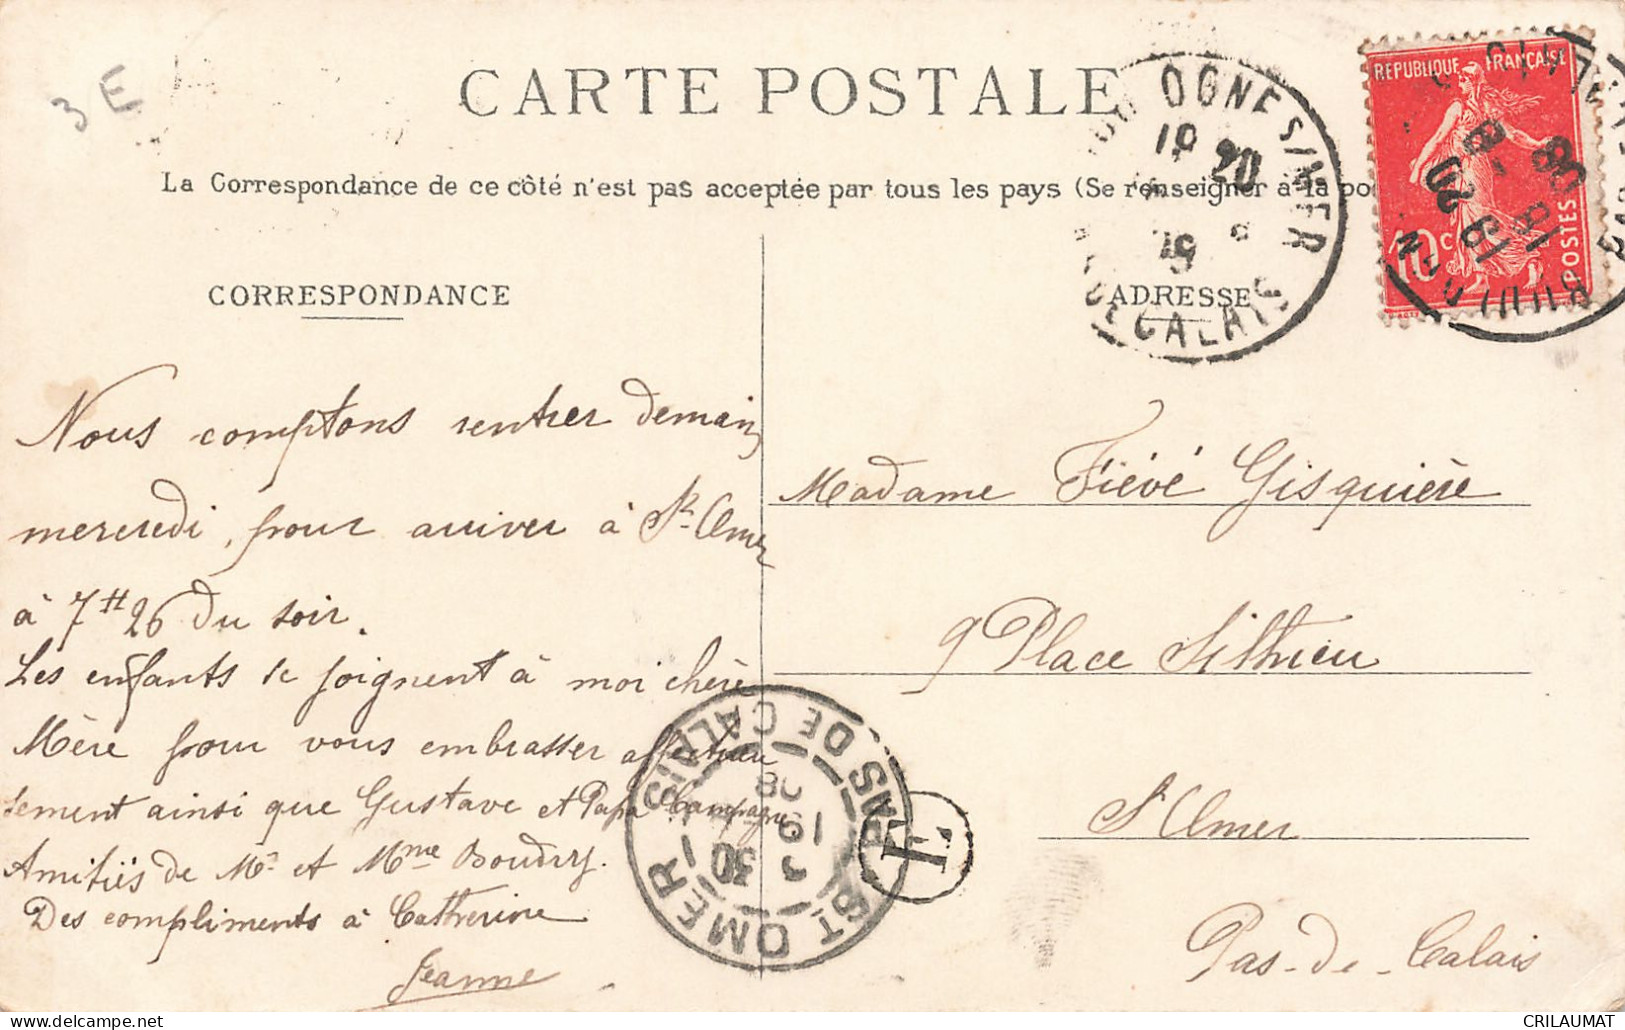 3E
CARTE POSTALE
La Correspondance de ce côté n'est pas acceptée par tous les pays (Se renseigner à la po
CORRESPONDANCE
ADRESSE
REPUBLIQUE FRANÇAISE
10c
POSTES
OGNE S/MER
CALAIS
Nous comptons rentrer demain
mercredi, pour arriver à St Omer
à 7H26 du soir.
Les enfants se joignent à moi chère
Mère pour vous embrasser affectueu
sement ainsi que Gustave et Papa Campagne
Amitiés de Mr et Mme Boudry.
Des compliments à Catherine
Jeanne
Madame Fiévé Gisquière
9 Place Sithieu
St Omer
Pas-de-Calais
ST OMER
PAS DE CALAIS
T
CRILAUMAT